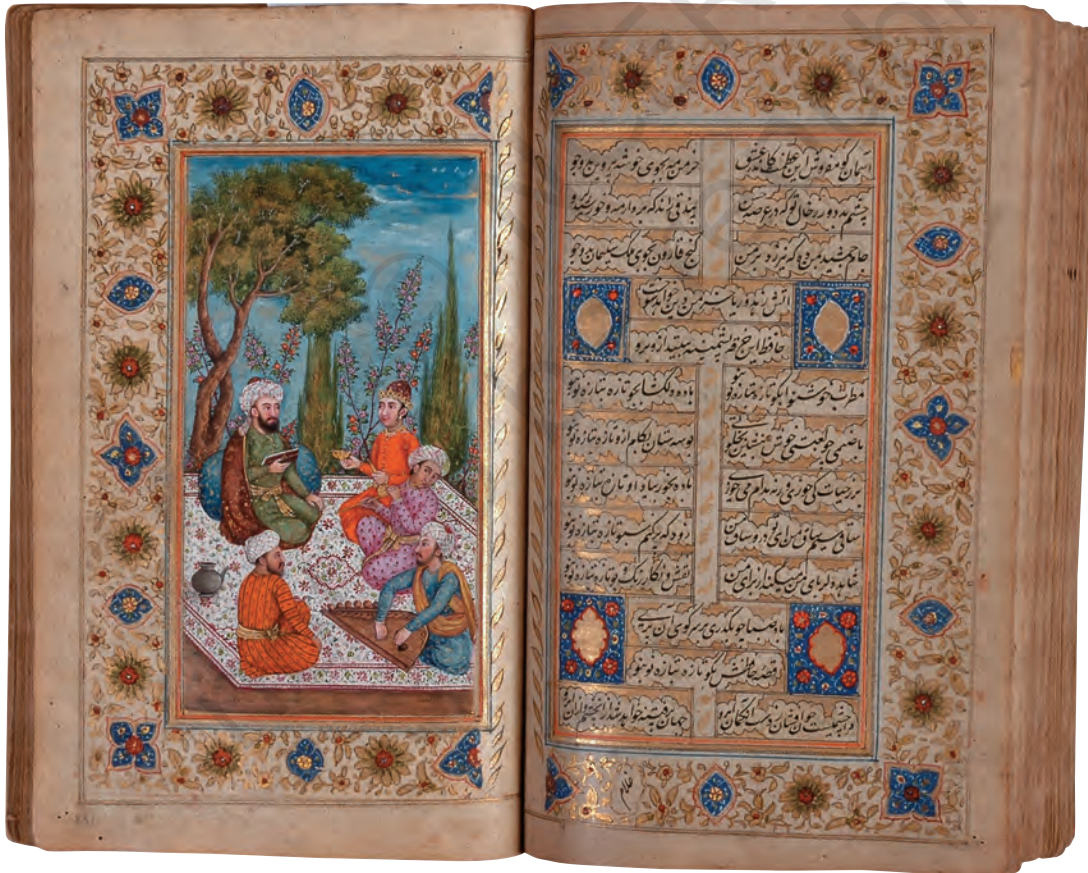 آسمان گو مفروش این عظمت کاندر عشق
خرمن مه بجوی خوشه پروین بدو جو
چشم بد دور ز خال تو که در عرصه حسن
بیدقی راند که برد از مه و خورشید گرو
جام جمشید بمن ده که نیرزد بر من
گنج قارون بجوی ملک سلیمان بدو جو
آتش زهد و ریا خرمن دین خواهد سوخت
حافظ این خرقه پشمینه بینداز و برو
مطرب خوش نوا بگو تازه بتازه نو بنو
باده دلگشا بجو تازه بتازه نو بنو
با صنمی چو لعبتی خوش بنشین بخلوتی
بوسه ستان بکام ازو تازه بتازه نو بنو
بر ز حیات کی خوری گر نه مدام می خوری
باده بخور بیاد او تازه بتازه نو بنو
ساقی سیم ساق من
زود که پر کنم سبو تازه بتازه نو بنو
شاهد دلربای من میکند از برای من
نقش و نگار و رنگ و بو تازه بتازه نو بنو
باد صبا چو بگذری بر سر کوی آن پری
قصه حافظش بگو تازه بتازه نو بنو
مرا چشمیست خون افشان ز دست آن کمان ابرو
جهان پر فتنه خواهد شد از آن چشم و از آن ابرو
غلام